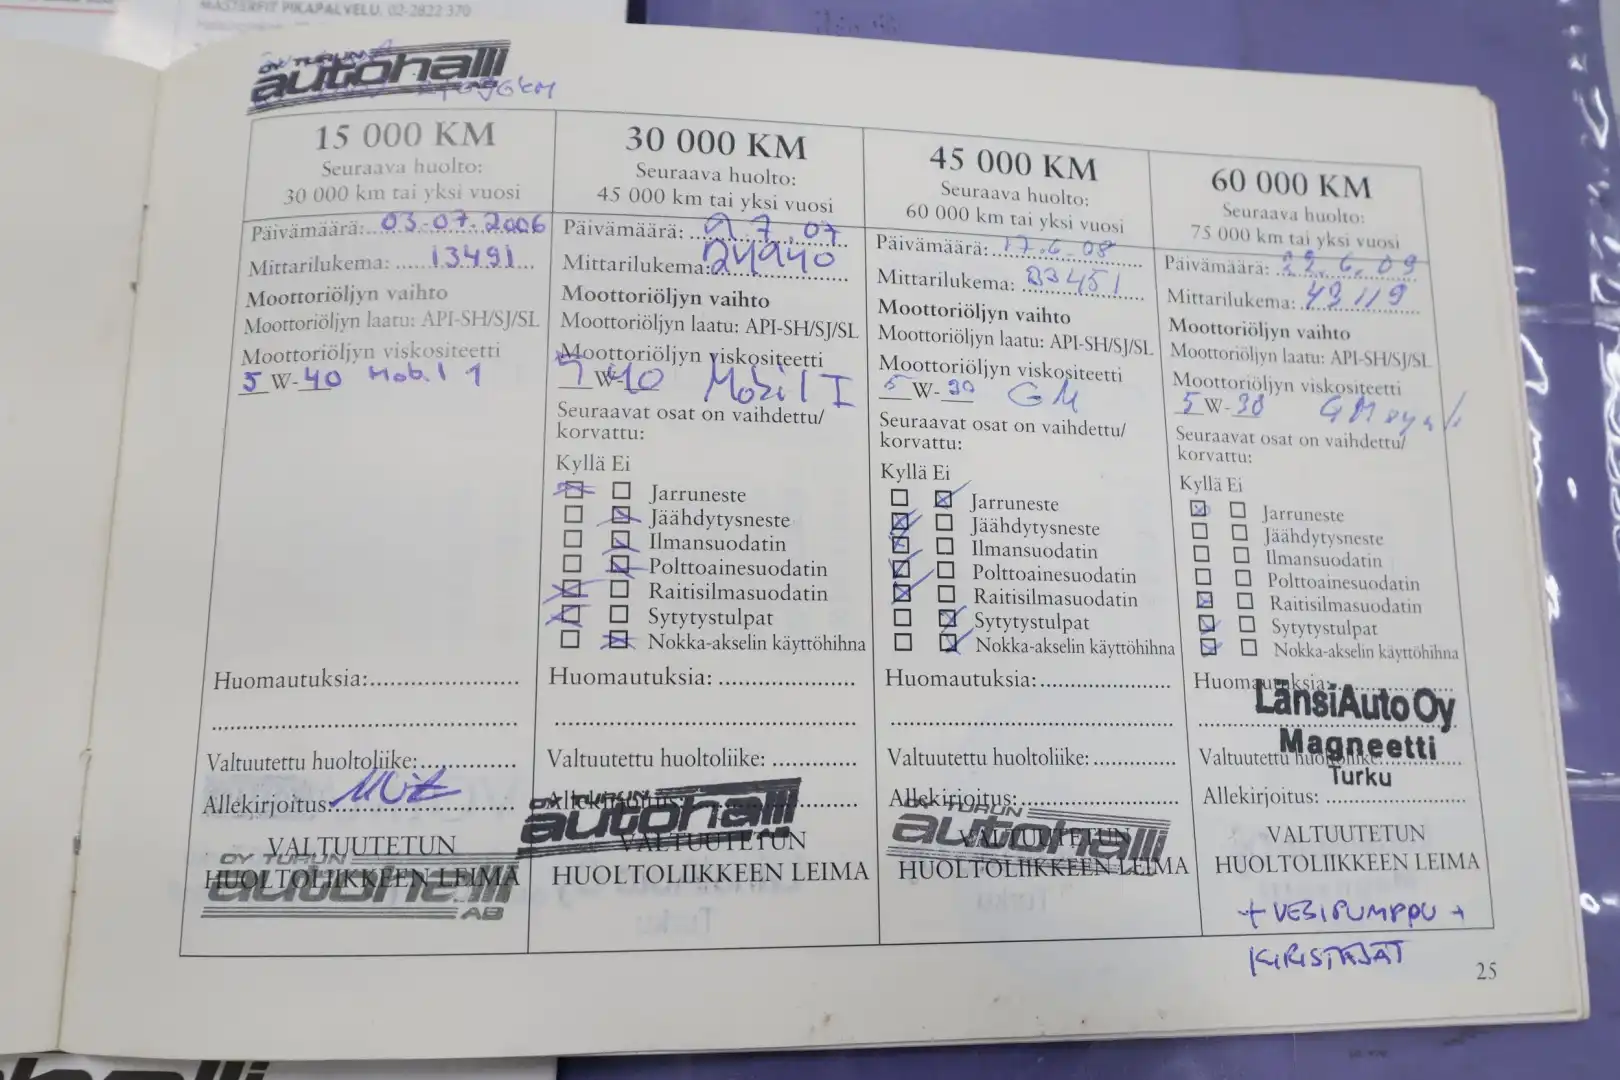 MASTERFIT PIKAPALVELU, 02-2822 370
OY TURUN
autohalli
15 000 KM
Seuraava huolto:
30 000 km tai yksi vuosi
Päivämäärä: 03.07.2006
Mittarilukema: 13491
Moottoriöljyn vaihto
Moottoriöljyn laatu: API-SH/SJ/SL
Moottoriöljyn viskositeetti
5 W-40 Mobil 1
Huomautuksia:
Valtuutettu huoltoliike:
Allekirjoitus:
VALTUUTETUN
HUOLTOLIIKKEEN LEIMA
OY TURUN
autohalli
AB
30 000 KM
Seuraava huolto:
45 000 km tai yksi vuosi
Päivämäärä: 9.7.07
Mittarilukema: 24940
Moottoriöljyn vaihto
Moottoriöljyn laatu: API-SH/SJ/SL
Moottoriöljyn viskositeetti
W-40 Mobil 1
Seuraavat osat on vaihdettu/
korvattu:
Kyllä Ei
Jarruneste
Jäähdytysneste
Ilmansuodatin
Polttoainesuodatin
Raitisilmasuodatin
Sytytystulpat
Nokka-akselin käyttöhihna
Huomautuksia:
Valtuutettu huoltoliike:
Allekirjoitus:
OY TURUN
autohalli
VALTUUTETUN
HUOLTOLIIKKEEN LEIMA
45 000 KM
Seuraava huolto:
60 000 km tai yksi vuosi
Päivämäärä: 17.6.08
Mittarilukema: 33451
Moottoriöljyn vaihto
Moottoriöljyn laatu: API-SH/SJ/SL
Moottoriöljyn viskositeetti
5 W-30 GM
Seuraavat osat on vaihdettu/
korvattu:
Kyllä Ei
Jarruneste
Jäähdytysneste
Ilmansuodatin
Polttoainesuodatin
Raitisilmasuodatin
Sytytystulpat
Nokka-akselin käyttöhihna
Huomautuksia:
Valtuutettu huoltoliike:
Allekirjoitus:
OY TURUN
autohalli
VALTUUTETUN
HUOLTOLIIKKEEN LEIMA
60 000 KM
Seuraava huolto:
75 000 km tai yksi vuosi
Päivämäärä: 22.6.09
Mittarilukema: 43119
Moottoriöljyn vaihto
Moottoriöljyn laatu: API-SH/SJ/SL
Moottoriöljyn viskositeetti
5 W-30 GM
Seuraavat osat on vaihdettu/
korvattu:
Kyllä Ei
Jarruneste
Jäähdytysneste
Ilmansuodatin
Polttoainesuodatin
Raitisilmasuodatin
Sytytystulpat
Nokka-akselin käyttöhihna
Huomautuksia:
LänsiAuto Oy
Magneetti
Valtuutettu huoltoliike:
Turku
Allekirjoitus:
VALTUUTETUN
HUOLTOLIIKKEEN LEIMA
+ VESIPUMPPU +
KIRISTÄJÄT
25